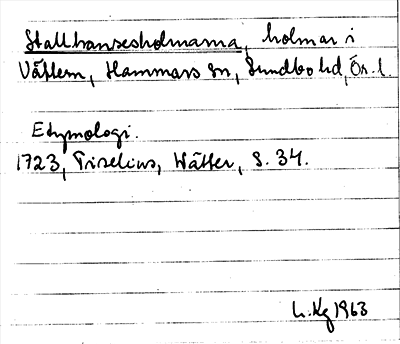 Stallhansesholmarna, holmar i
Vättern, Hammars sn, Sundbo hd, Ör. l.
Etymologi.
1723, Tiselius, Wätter, S. 34.
L. Kg 1963